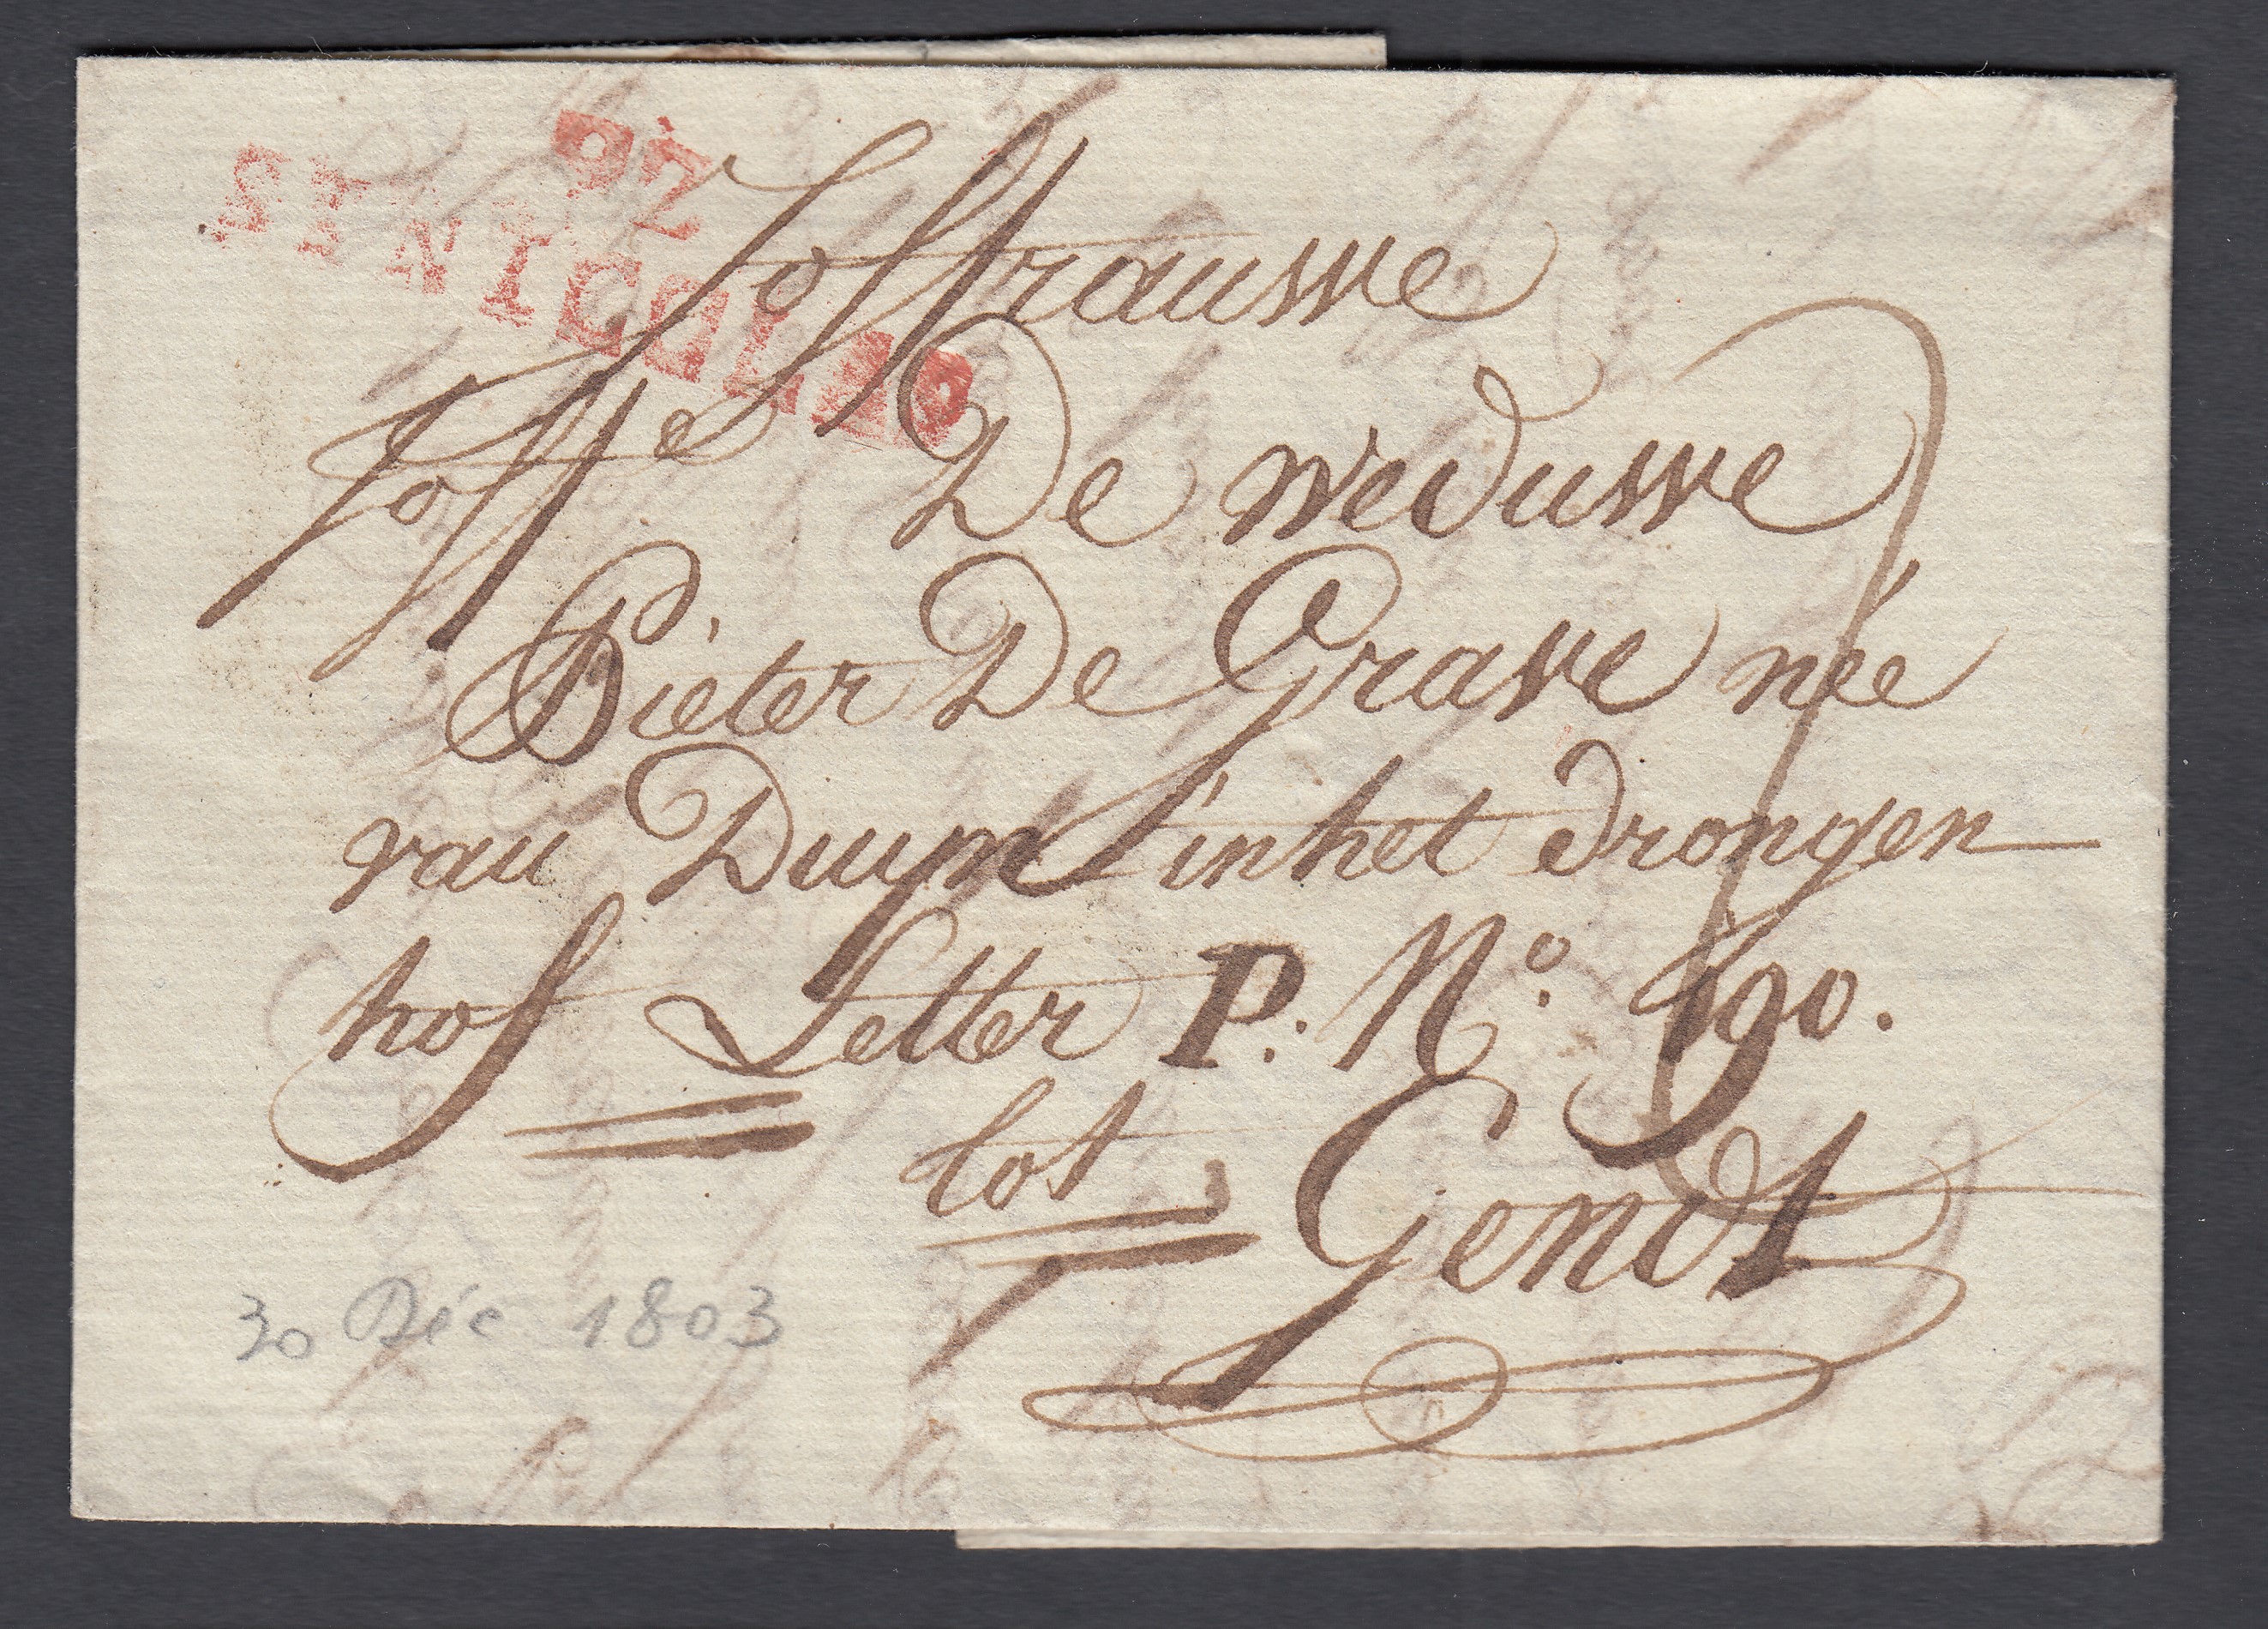 92
ST NICOLAS
Joffrauwe
Joffe De weduwe
Pieter De Grave née
van Duym in het drongen
hof Letter P. No. 190.
tot Gendt
30 Déc 1803